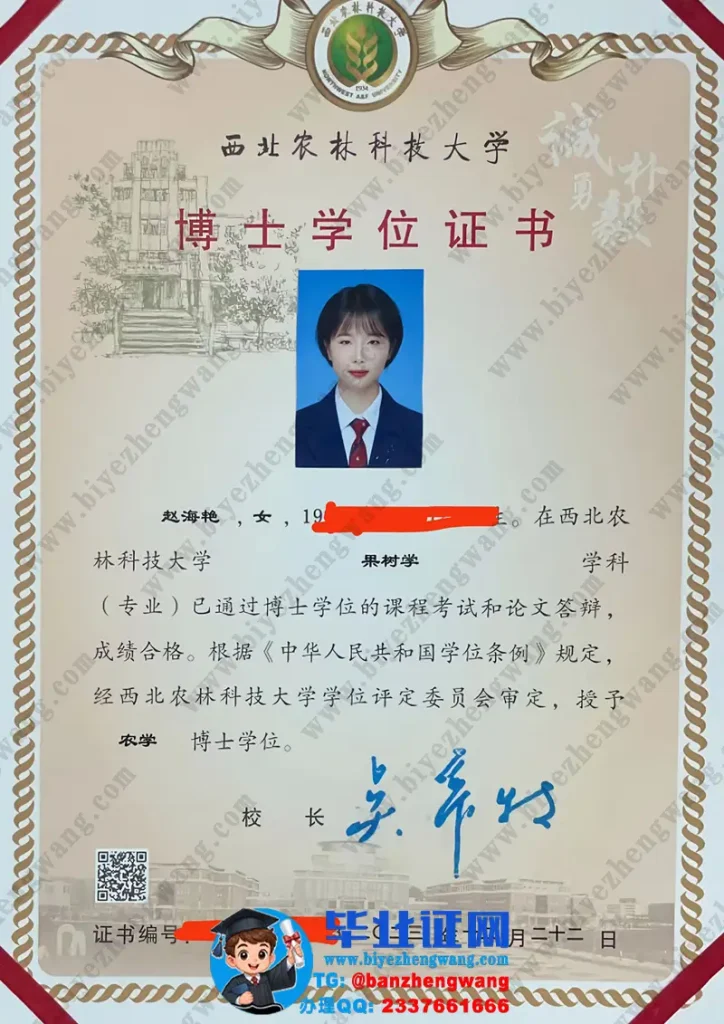 西北农林科技大学
NORTHWEST A&F UNIVERSITY
1934
诚朴
勇毅
西北农林科技大学
博士学位证书
赵海艳，女，19 生。在西北农
林科技大学 果树学 学科
（专业）已通过博士学位的课程考试和论文答辩，
成绩合格。根据《中华人民共和国学位条例》规定，
经西北农林科技大学学位评定委员会审定，授予
农学 博士学位。
校 长
证书编号： 月二十二日
毕业证网
www.biyezhengwang.com
TG: @banzhengwang
办理QQ: 2337661666
www.biyezhengwang.com